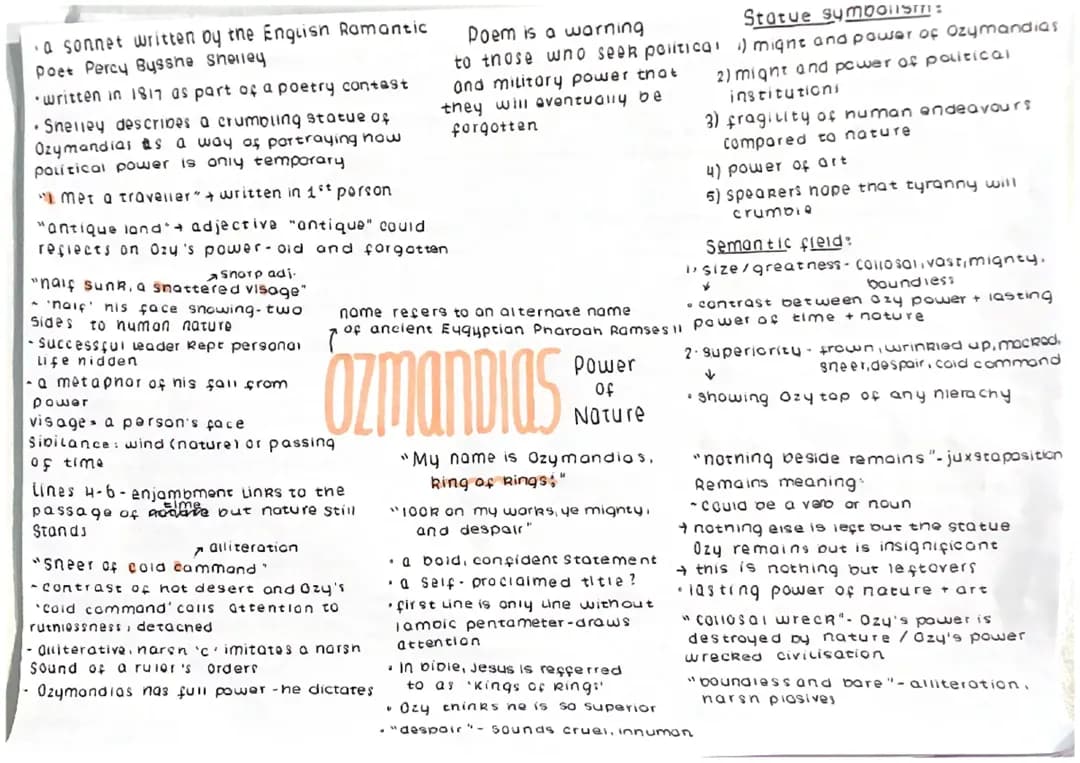 · a sonnet written by the English Romantic
poet Percy Bysshe Shelley
· written in 1817 as part of a poetry contest
· Shelley describes a crumbling statue of
Ozymandias as a way of portraying how
political power is only temporary
"I met a traveller" → written in 1st person
"antique land" → adjective "antique" could
reflects on Ozy's power - old and forgotten
↗ sharp adj.
"half sunk, a shattered visage"
~ 'half' his face showing - two
sides to human nature
- successful leader kept personal
life hidden
- a metaphor of his fall from
power
visage = a person's face
Sibilance: wind (nature) or passing
of time
Lines 4-6 - enjambment links to the
time
passage of but nature still
stands
↗ alliteration
"sneer of cold command"
- contrast of hot desert and Ozy's
'cold command' calls attention to
ruthlessness, detached
- alliterative, harsh 'c' imitates a harsh
sound of a ruler's orders
- Ozymandias has full power - he dictates
Poem is a warning
to those who seek political
and military power that
they will eventually be
forgotten
name refers to an alternate name
of ancient Eygyptian Pharoah Ramses II
OZMANDIAS
Power
of
Nature
"My name is Ozymandias,
king of kings;"
"look on my works, ye mighty,
and despair"
· a bold, confident statement
· a self-proclaimed title?
· first line is only line without
iambic pentameter - draws
attention
· In bible, Jesus is reffered
to as 'Kings of Kings'
· Ozy thinks he is so superior
· "despair" - sounds cruel, inhuman
Statue symbolism:
1) might and power of Ozymandias
2) might and power of political
institutions
3) fragility of human endeavours
compared to nature
4) power of art
5) speakers hope that tyranny will
crumble
Semantic field:
1. size/greatness - collosal, vast, mighty,
boundless
↓
· contrast between Ozy power + lasting
power of time + nature
2. superiority - frown, wrinkled up, mocked,
sneer, despair, cold command
↓
· showing Ozy top of any hierachy
"nothing beside remains" - juxstaposition
Remains meaning:
- could be a verb or noun
→ nothing else is left but the statue
Ozy remains but is insignificant
→ this is nothing but leftovers
· lasting power of nature + art
"collosal wreck" - Ozy's power is
destroyed by nature / Ozy's power
wrecked civilisation
"boundless and bare" - alliteration,
harsh plosives